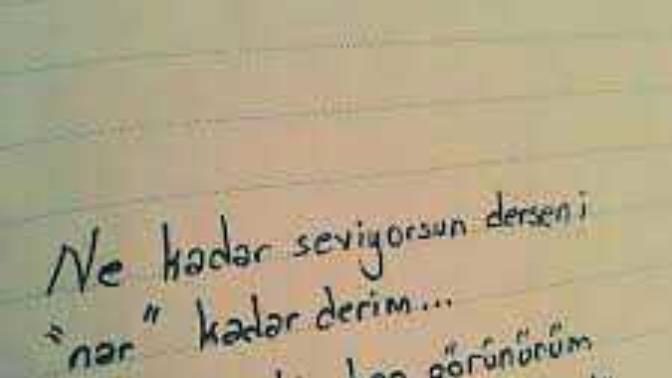 Ne kadar seviyorsun dersen;
"nar" kadar derim...
görünürüm